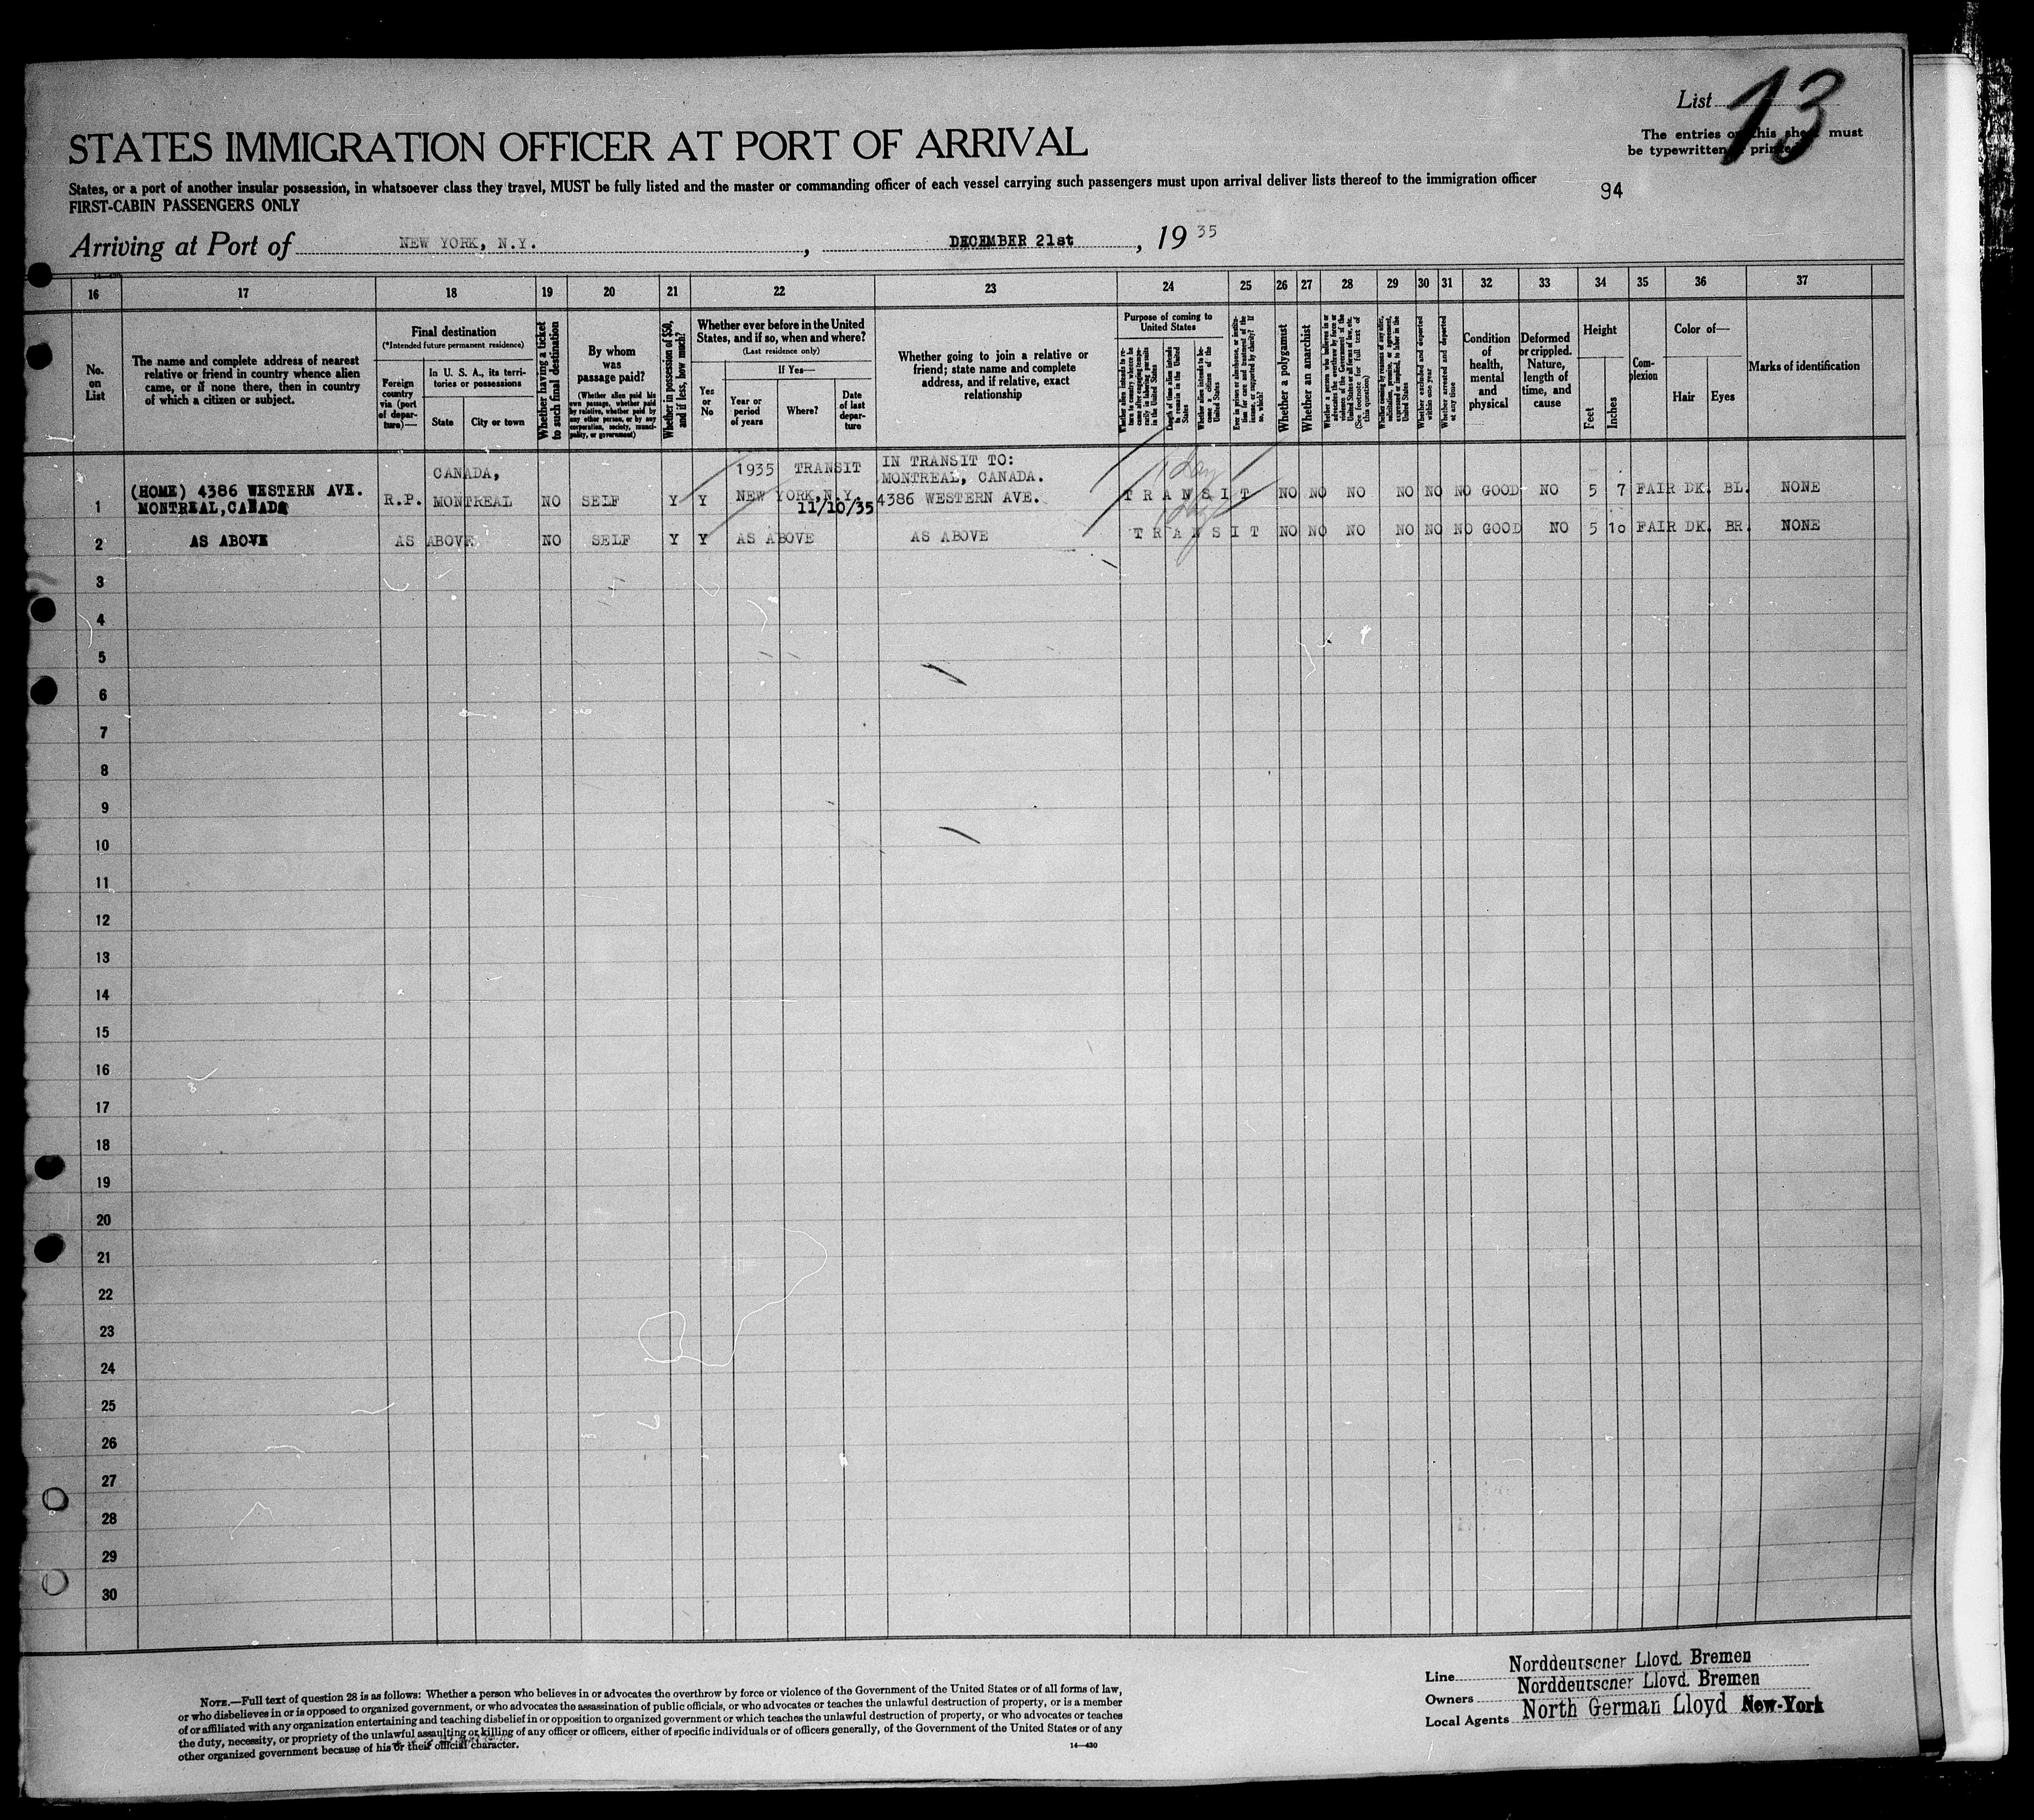 List 13
The entries on this sheet must
be typewritten or printed
STATES IMMIGRATION OFFICER AT PORT OF ARRIVAL
States, or a port of another insular possession, in whatsoever class they travel, MUST be fully listed and the master or commanding officer of each vessel carrying such passengers must upon arrival deliver lists thereof to the immigration officer
FIRST-CABIN PASSENGERS ONLY
94
Arriving at Port of NEW YORK, N.Y. , DECEMBER 21st , 1935
16 17 18 19 20 21 22 23 24 25 26 27 28 29 30 31 32 33 34 35 36 37
No. on List
The name and complete address of nearest relative or friend in country whence alien came, or if none there, then in country of which a citizen or subject.
Final destination
(*Intended future permanent residence)
Foreign country via (port of departure)—
In U. S. A., its territories or possessions
State
City or town
Whether having a ticket to such final destination
By whom was passage paid?
(Whether alien paid his own passage, whether paid by relative, whether paid by any other person, or by any corporation, society, municipality, or government)
Whether in possession of $50, and if less, how much?
Whether ever before in the United States, and if so, when and where?
(Last residence only)
Yes or No
If Yes—
Year or period of years
Where?
Date of last departure
Whether going to join a relative or friend; state name and complete address, and if relative, exact relationship
Purpose of coming to United States
Whether alien intends to return to country whence he came after engaging temporarily in laboring pursuits in the United States
Length of time alien intends to remain in the United States
Whether alien intends to become a citizen of the United States
Ever in prison or almshouse, or institution for care and treatment of the insane, or supported by charity? If so, which?
Whether a polygamist
Whether an anarchist
Whether a person who believes in or advocates the overthrow by force or violence of the Government of the United States or all forms of law, etc. (See footnote for full text of this question)
Whether coming by reasons of any offer, solicitation, promise, or agreement, expressed or implied, to labor in the United States
Whether excluded and deported within one year
Whether arrested and deported at any time
Condition of health, mental and physical
Deformed or crippled. Nature, length of time, and cause
Height
Feet
Inches
Complexion
Color of—
Hair
Eyes
Marks of identification
CANADA, 1935 TRANSIT IN TRANSIT TO:
MONTREAL, CANADA. 1 day
1 (HOME) 4386 WESTERN AVE. R.P. MONTREAL NO SELF Y Y NEW YORK, N.Y. 4386 WESTERN AVE. TRANSIT NO NO NO NO NO NO GOOD NO 5 7 FAIR DK. BL. NONE
MONTREAL, CANADA 11/10/35
1 day
2 AS ABOVE AS ABOVE NO SELF Y Y AS ABOVE AS ABOVE TRANSIT NO NO NO NO NO NO GOOD NO 5 10 FAIR DK. BR. NONE
3
4
5
6
7
8
9
10
11
12
13
14
15
16
17
18
19
20
21
22
23
24
25
26
27
28
29
30
NOTE.—Full text of question 28 is as follows: Whether a person who believes in or advocates the overthrow by force or violence of the Government of the United States or of all forms of law,
or who disbelieves in or is opposed to organized government, or who advocates the assassination of public officials, or who advocates or teaches the unlawful destruction of property, or is a member
of or affiliated with any organization entertaining and teaching disbelief in or opposition to organized government or which teaches the unlawful destruction of property, or who advocates or teaches
the duty, necessity, or propriety of the unlawful assaulting or killing of any officer or officers, either of specific individuals or of officers generally, of the Government of the United States or of any
other organized government because of his or their official character.
14—430
Line Norddeutscher Lloyd. Bremen
Owners Norddeutscher Lloyd. Bremen
Local Agents North German Lloyd New-York